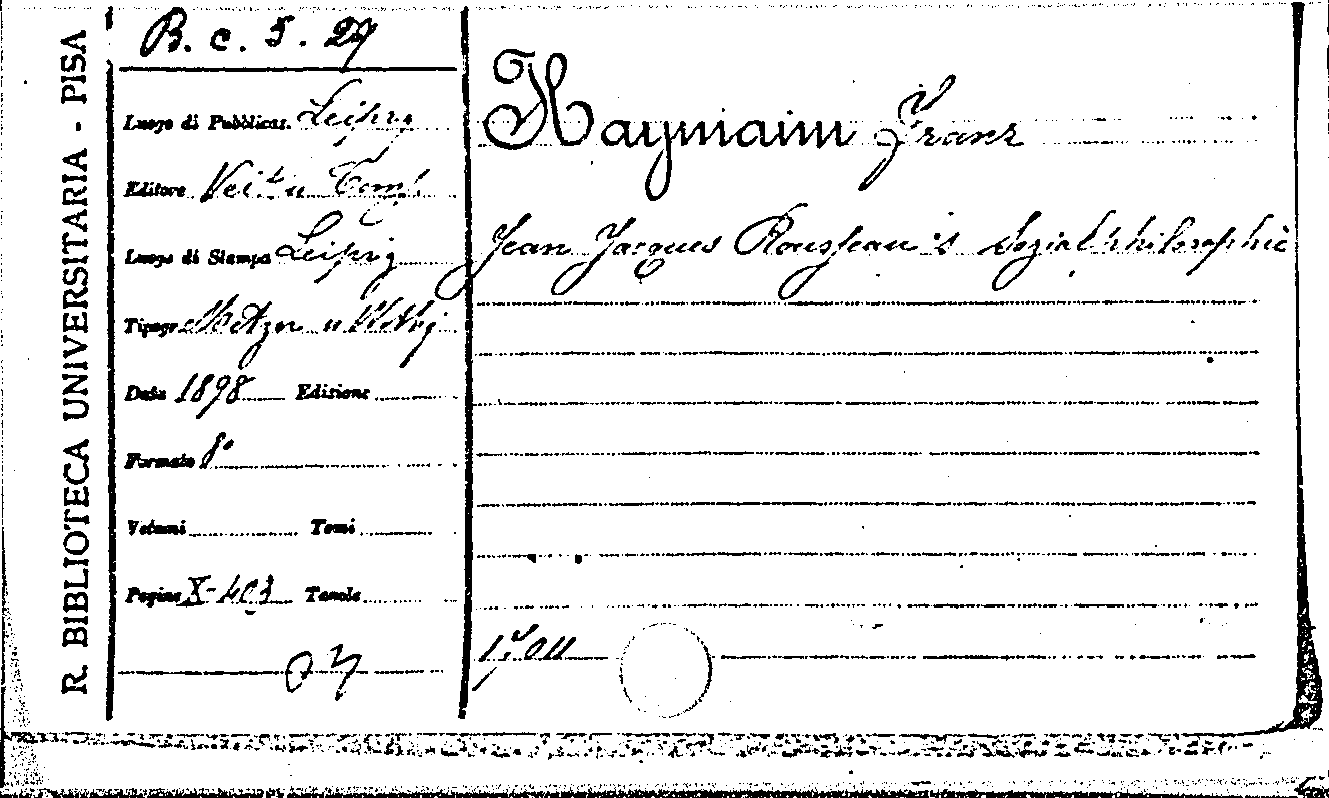 R. BIBLIOTECA UNIVERSITARIA - PISA
B. c. 5. 27
Luogo di Pubblicaz. Leipzig
Editore Veit u Comp.
Luogo di Stampa Leipzig
Tipogr. Metzger u Wittig
Data 1898 Edizione
Formato 8°
Volumi Tomi
Pagine X-403 Tavole
Haymann Franz
Jean Jacques Rousseau's Sozialphilosophie